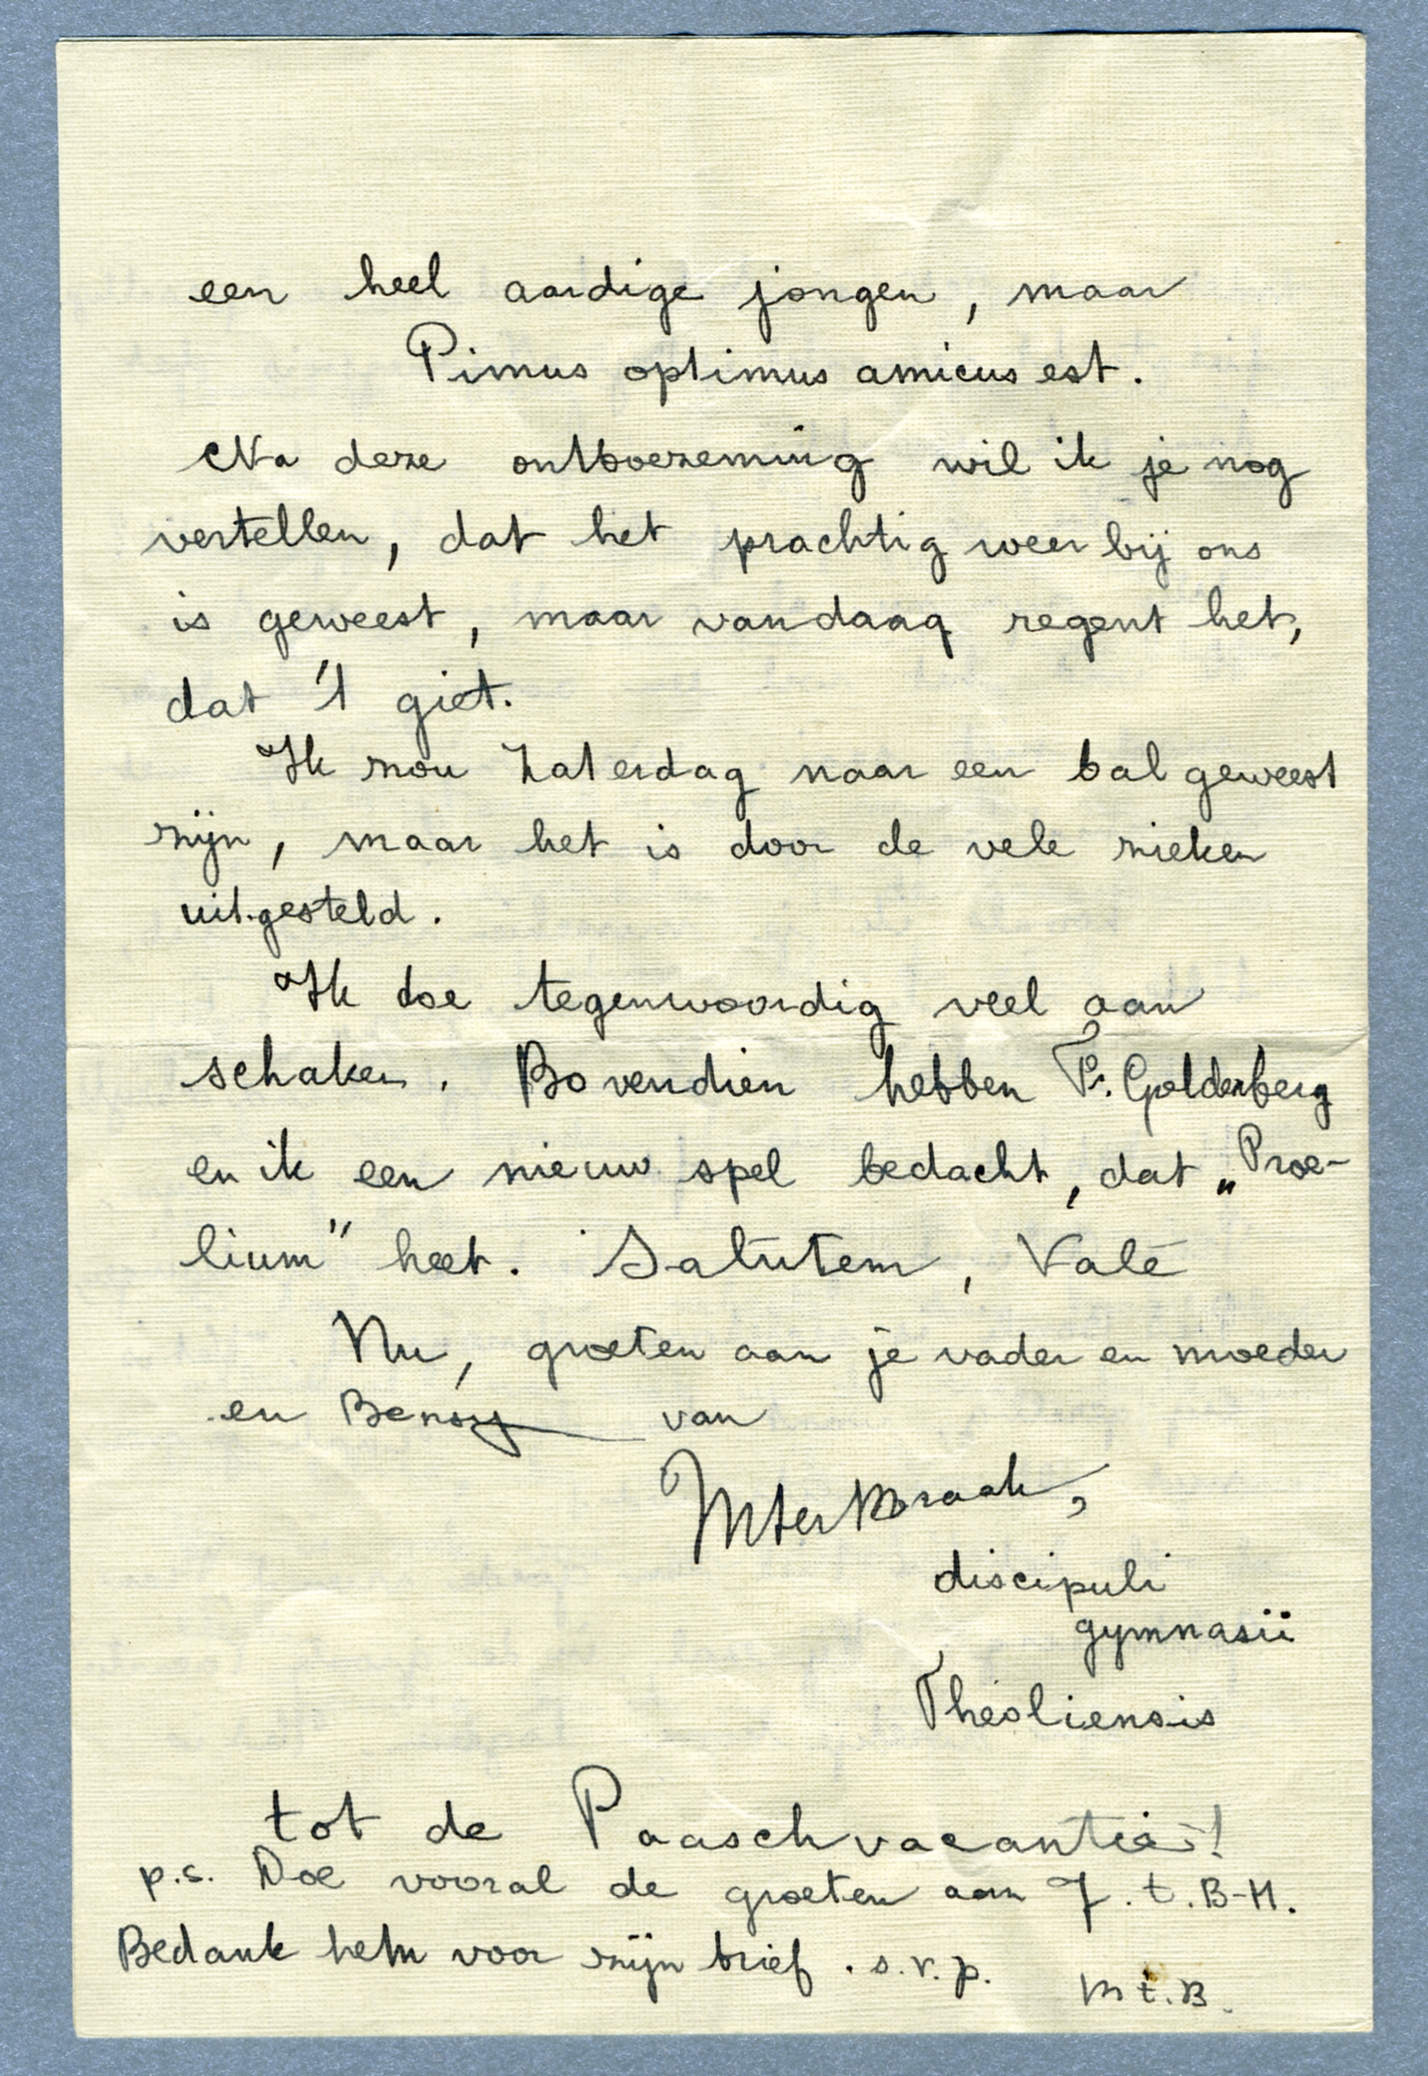 een heel aardige jongen, maar
Pimus optimus amicus est.
Na deze ontboezeming wil ik je nog
vertellen, dat het prachtig weer bij ons
is geweest, maar vandaag regent het,
dat 't giet.
Ik zou Zaterdag naar een bal geweest
zijn, maar het is door de vele zieken
uitgesteld.
Ik doe tegenwoordig veel aan
schaken. Bovendien hebben Fr. Goldenberg
en ik een nieuw spel bedacht, dat „Proe-
lium" heet. Salutem, Vale
Nu, groeten aan je vader en moeder
en Benny van
MterBraak,
discipuli
gymnasii
Theoliensis
tot de Paaschvacantie!
p.s. Doe vooral de groeten aan J. t. B-H.
Bedank hem voor zijn brief. s.v.p.
M t. B.